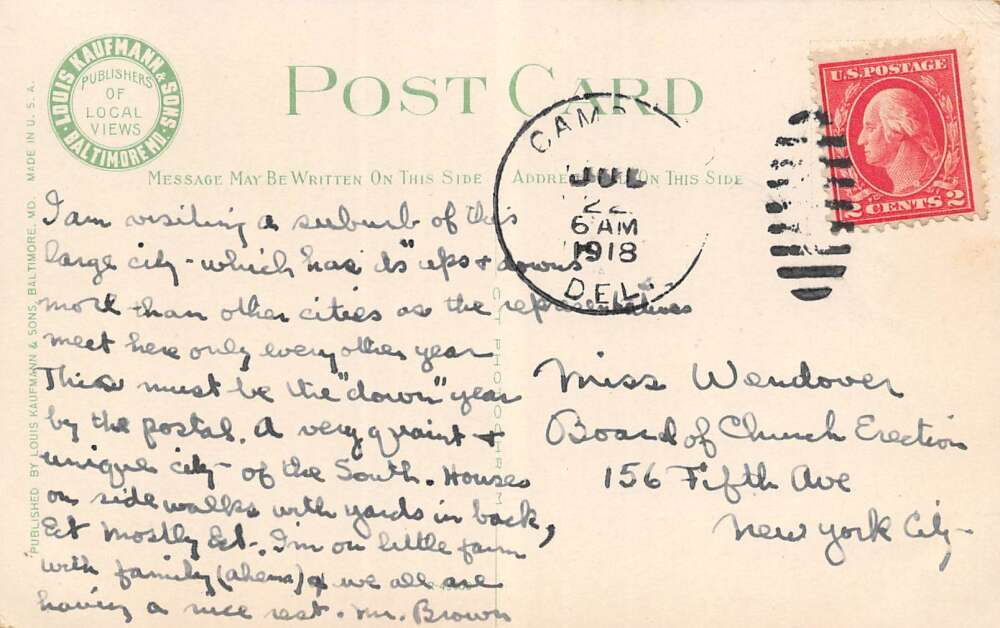 LOUIS KAUFMANN & SONS.
BALTIMORE MD.
PUBLISHERS
OF
LOCAL
VIEWS
POST CARD
MESSAGE MAY BE WRITTEN ON THIS SIDE
ADDRE ON THIS SIDE
PUBLISHED BY LOUIS KAUFMANN & SONS, BALTIMORE, MD. MADE IN U. S. A.
CAM
JUL
22
6 AM
1918
DEL.
U.S. POSTAGE
2 CENTS 2
I am visiting a suburb of this
large city - which has its "ups & downs
more than other cities as the representatives
meet here only every other year
This must be the "down" year
by the postal. A very quaint &
unique city - of the South. Houses
on side walks with yards in back,
Ect Mostly Ect. I'm on little farm
with family (ahem) & we all are
having a nice rest. Mr. Brown
Miss Wendover
Board of Church Erection
156 Fifth Ave
New York City